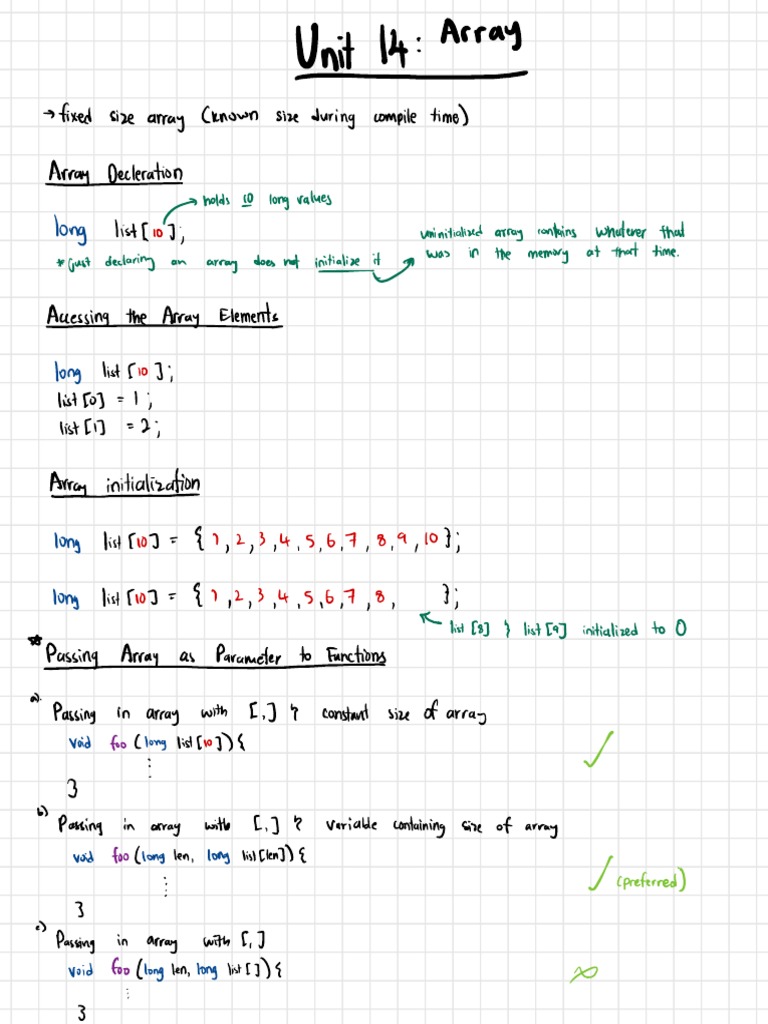 Unit 14: Array
→ fixed size array (known size during compile time)
Array Decleration
→ holds 10 long values
long list[10];
uninitialized array contains whatever that
was in the memory at that time.
* just declaring an array does not initialize it
Accessing the Array Elements
long list [10];
list[0] = 1;
list[1] = 2;
Array initialization
long list[10] = {1,2,3,4,5,6,7,8,9,10};
long list[10] = {1,2,3,4,5,6,7,8, };
list [8] & list [9] initialized to 0
* Passing Array as Parameter to Functions
a) Passing in array with [,] & constant size of array
void foo (long list[10]){
⋮
}
b) Passing in array with [,] & variable containing size of array
void foo (long len, long list[len]){
⋮
(preferred)
}
c) Passing in array with [,]
void foo (long len, long list []){
⋮
}